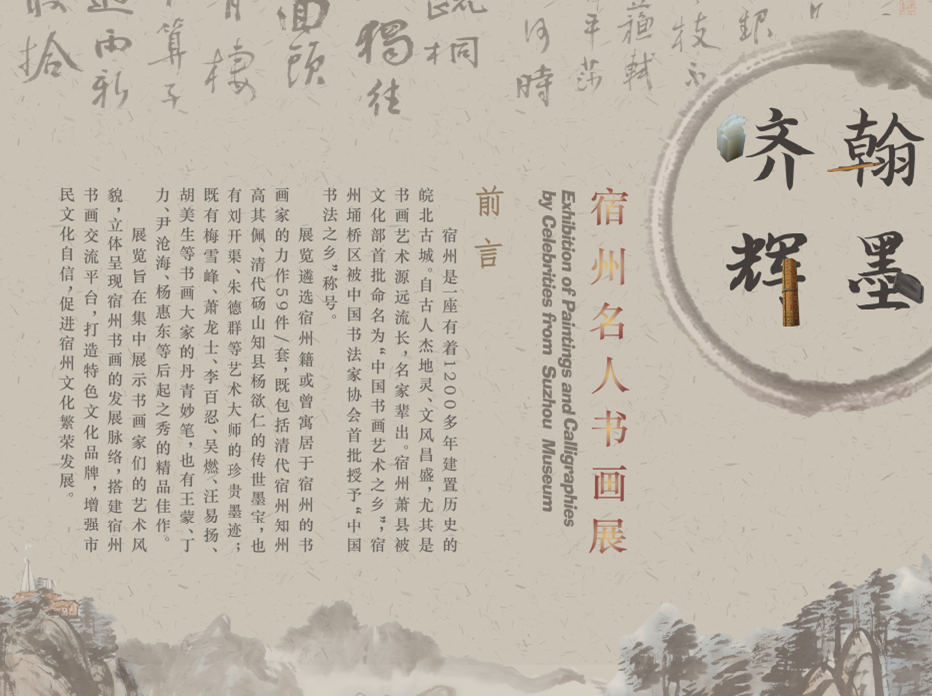 翰墨
齐辉
宿州名人书画展
Exhibition of Paintings and Calligraphies
by Celebrities from Suzhou Museum
前言
宿州是一座有着1200多年建置历史的
皖北古城。自古人杰地灵、文风昌盛，尤其是
书画艺术源远流长，名家辈出。宿州萧县被
文化部首批命名为“中国书画艺术之乡”，宿
州埇桥区被中国书法家协会首批授予“中国
书法之乡”称号。
展览遴选宿州籍或曾寓居于宿州的书
画家的力作59件/套，既包括清代宿州知州
高其佩、清代砀山知县杨欲仁的传世墨宝，也
有刘开渠、朱德群等艺术大师的珍贵墨迹；
既有梅雪峰、萧龙士、李百忍、吴燃、汪易扬、
胡美生等书画大家的丹青妙笔，也有王蒙、丁
力、尹沧海、杨惠东等后起之秀的精品佳作。
展览旨在集中展示书画家们的艺术风
貌，立体呈现宿州书画的发展脉络，搭建宿州
书画交流平台，打造特色文化品牌，增强市
民文化自信，促进宿州文化繁荣发展。
何時
平莎
蘓軾
枝
銀
疏桐
獨往
面頭
有棲
算子
雨新
拾